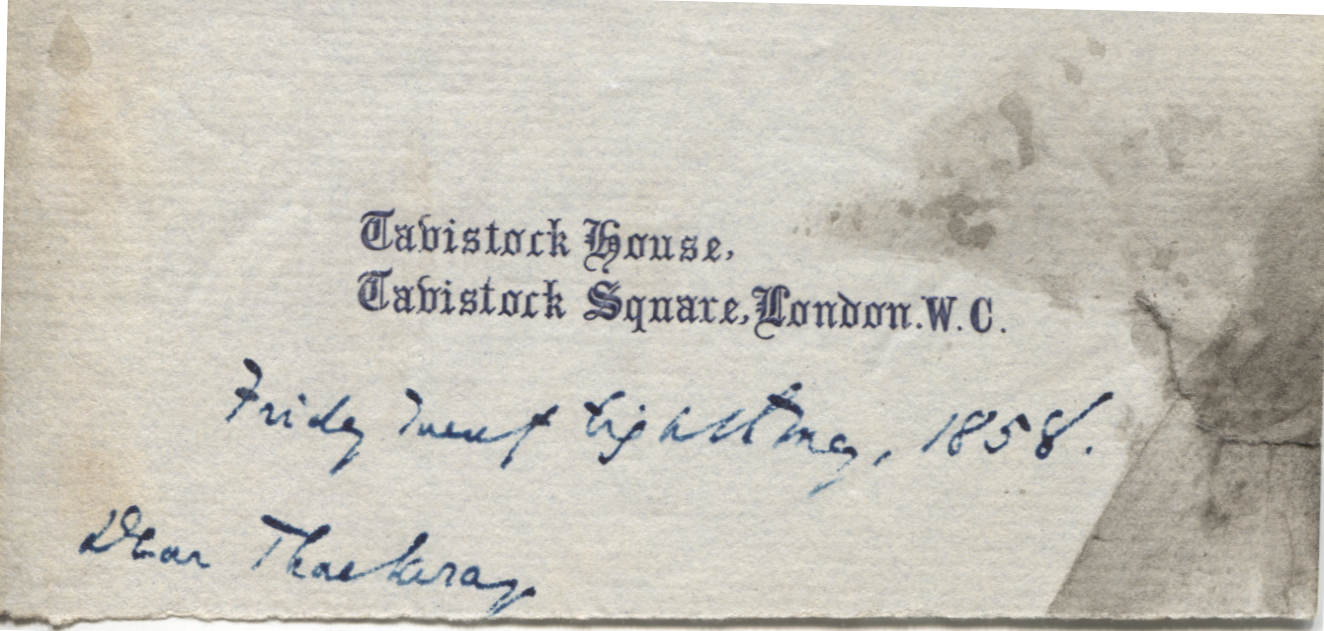 Tavistock House,
Tavistock Square, London. W. C.
Friday Twenty Eighth May, 1858.
Dear Thackeray